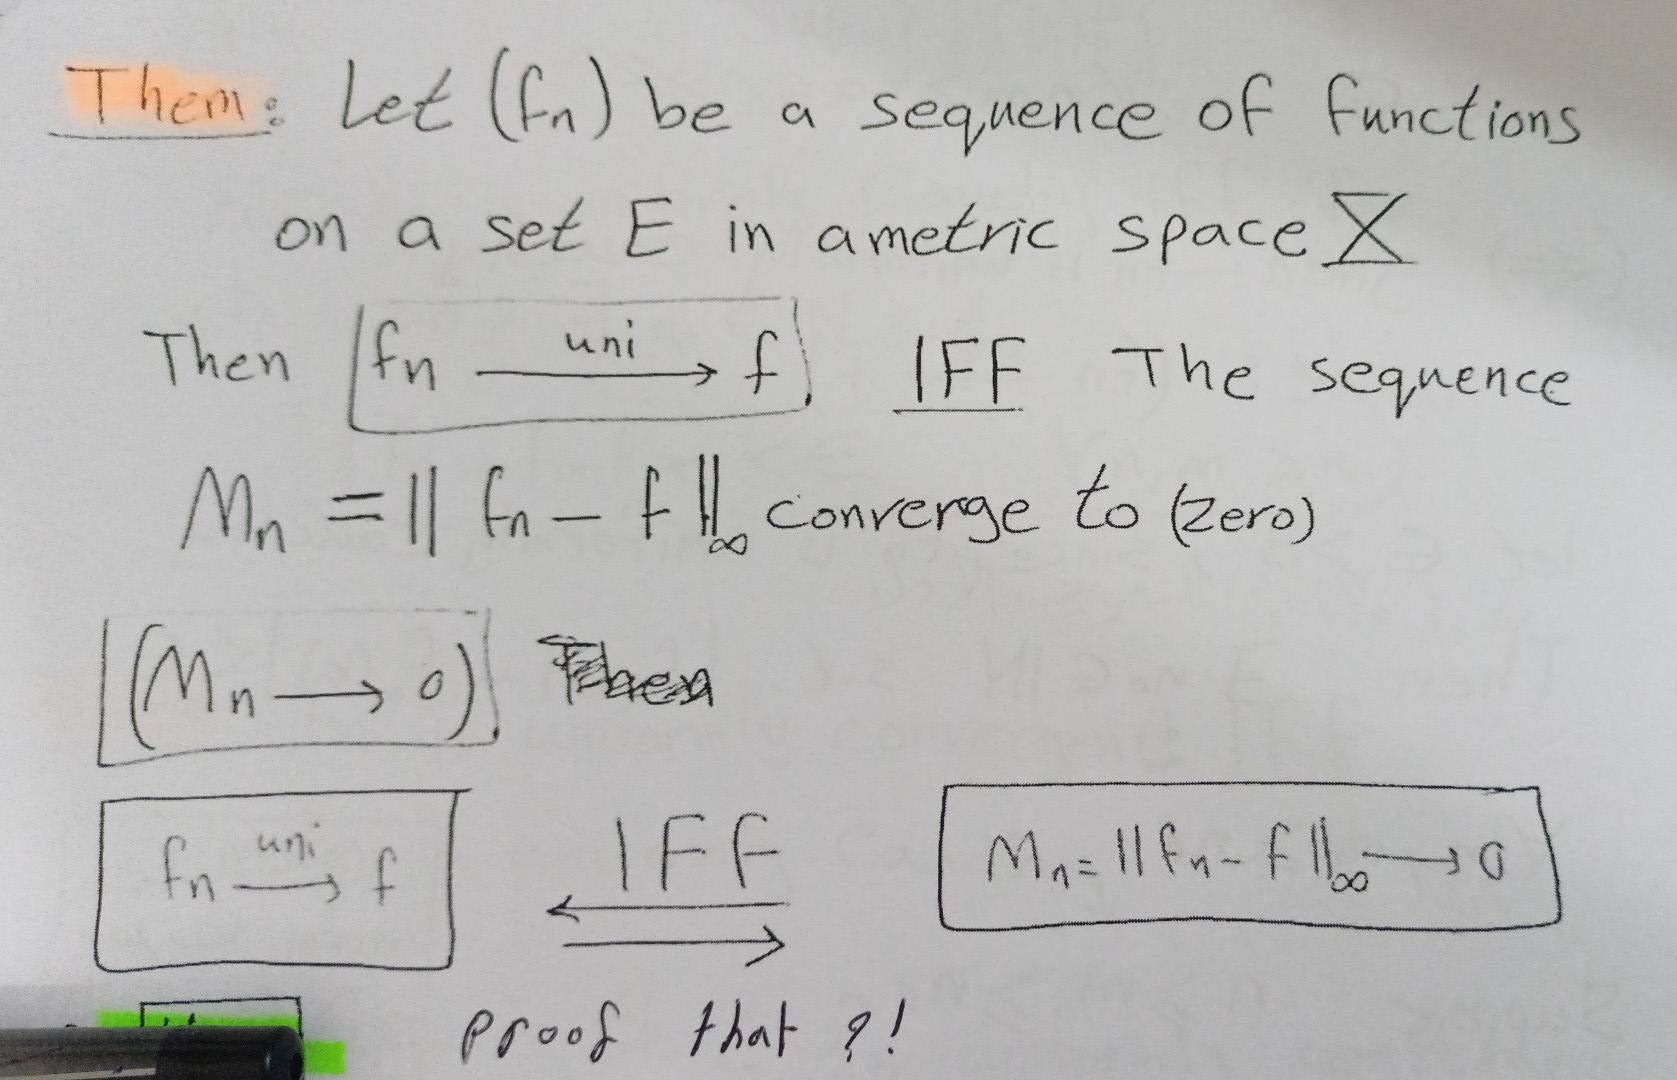 Them: Let (fn) be a sequence of functions
on a set E in a metric space X
Then fn uni → f IFF The sequence
Mn = || fn - f ||∞ converge to (zero)
(Mn → 0) Then
fn uni → f IFF Mn = || fn - f ||∞ → 0
proof that ?!